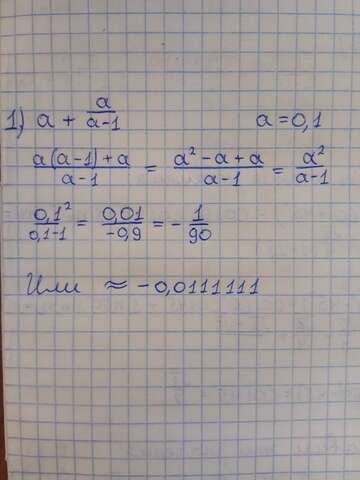 1) a + a/(a-1) a = 0,1
(a(a-1)+a)/(a-1) = (a² - a + a)/(a-1) = a²/(a-1)
0,1²/(0,1-1) = 0,01/(-0,9) = - 1/90
Или ≈ -0,0111111